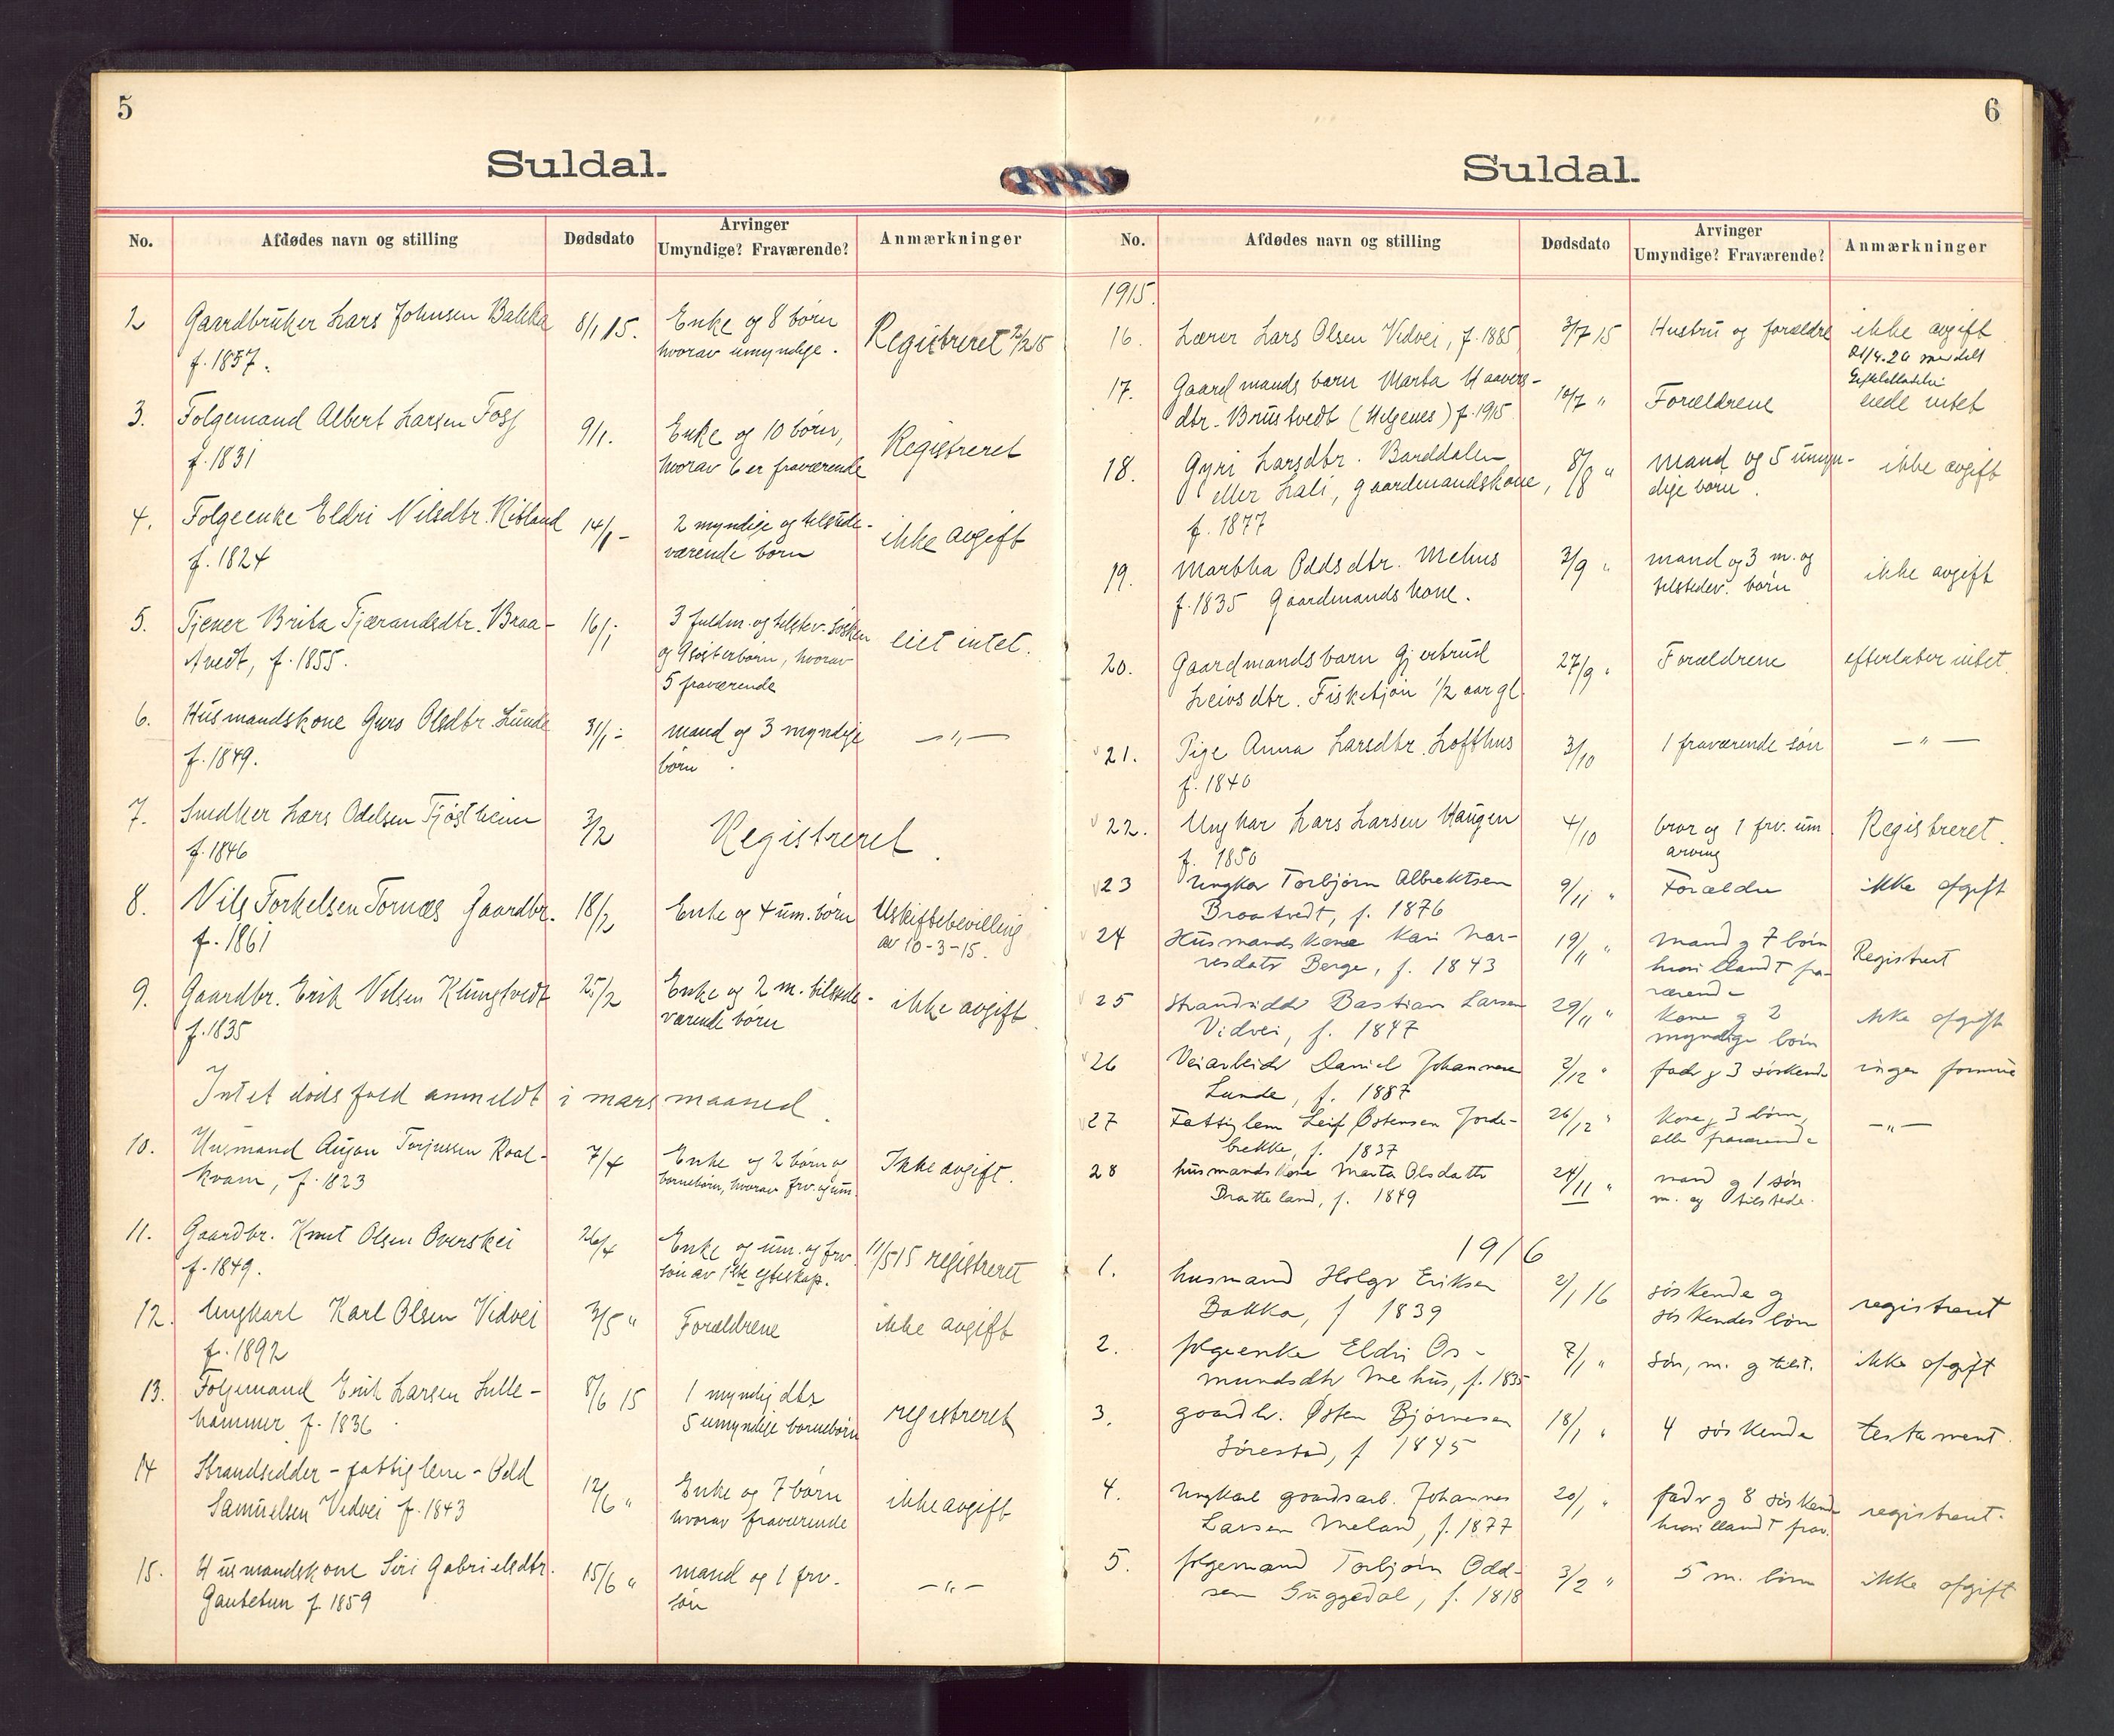 5
Suldal.
No. Afdødes navn og stilling Dødsdato Arvinger Umyndige? Fraværende? Anmærkninger
2 Gaardbruker Lars Johnsen Bakka 8/1 15. Enke og 8 børn Registreret
f. 1857. hvorav umyndige.
3. Følgemand Albert Larsen Foss 9/1. Enke og 10 børn, Registreret
f. 1831 hvorav 6 er fraværende
4. Følgeenke Eldri Nilsdtr. Ritland 14/1 - 2 myndige og tilstede- ikke avgift
f. 1824 værende børn
5. Tjener Brita Tjærandsdtr. Braa- 16/1 3 fuldm. og tilstev. søsken eiet intet.
tvedt, f. 1855. og 9 søsterbørn, hvorav
5 fraværende
6. Husmandskone Guro Olsdtr. Lunde 31/1 - mand og 3 myndige — „ —
f. 1849. børn
7. Snedker Lars Odelsen Tjøstheim 3/2 Registreret.
f. 1846
8. Nils Torkelsen Tornæs Gaardbr. 18/2 Enke og 4 um. børn Uskiftebevilling
f. 1861 av 10-3-15.
9. Gaardbr. Erik Nilsen Klungtvedt 25/2 Enke og 2 m. tilstede- ikke avgift
f. 1835 værende børn
Intet dødsfald anmeldt i mars maaned.
10. Husmand Torjussen Roal- 7/4 Enke og 2 børn og Ikke avgift.
kvam, f. 1823 barnebørn, hvorav frv. og um.
11. Gaardbr. Knut Olsen Overskei 26/4 Enke og um. og frv. 11/5 15 registreret
f. 1849. søn av 1ste egteskap.
12. Ungkarl Karl Olsen Vidvei 3/5 " Forældrene ikke avgift
f. 1892
13. Følgemand Erik Larsen Lille- 8/6 15 1 myndig dtr registreret
hammer f. 1836 5 umyndige barnebørn
14 Strandsidder - fattiglem - Odd 12/6 " Enke og 7 børn ikke avgift
Samuelsen Vidvei f. 1843 hvorav fraværende
15. Husmandskone Siri Gabrielsdtr. 15/6 " mand og 1 frv. — „ —
Gautetun f. 1859 søn
6
Suldal.
No. Afdødes navn og stilling Dødsdato Arvinger Umyndige? Fraværende? Anmærkninger
1915.
16. Lærer Lars Olsen Vidvei, f. 1885 3/7 15 Hustru og forældre ikke avgift
meddelt
17. Gaardmands barn Marta Haavers- 10/7 " Forældrene eiede intet
dtr. Brustvedt (Helgenes) f. 1915
18. Gyri Larsdtr. Barddalen 8/8 " Mand og 5 umyn- ikke avgift
eller Lali, gaardmandskone, dige børn.
f. 1877
19. Martha Oddsdtr. Mehus 3/9 " mand og 3 m. og ikke avgift
f. 1835 Gaardmandskone. tilstedev. børn
20. Gaardmandsbarn Gjertrud 27/9 " Forældrene efterlater intet.
Leivsdtr. Fisketjøn 1/2 aar gl.
21. Pige Anna Larsdtr. Lofthus 3/10 1 fraværende søn — „ —
f. 1840
22. Ungkar Lars Larsen Haugen 4/10 bror og 1 frv. um. Registreret.
f. 1850 arving
23 Ungkar Torbjørn Albrektsen 9/11 " Forældre ikke afgift
Braatvedt, f. 1876
24 Husmandskone Kari Nar- 19/11 " Mand og 7 børn Registrert
vesdatr Berge, f. 1843 hvoriblandt fra-
værende
25 Strandsidder Bastian Larsen 29/11 " Kone og 2 ikke afgift
Vidvei, f. 1847 myndige børn
26 Veiarbeider Daniel Johannesen 2/12 " fader og 3 søskende ingen formue
Lunde, f. 1887
27 Fattiglem Leif Østensen Jorde- 26/12 " Kone, 3 børn, — „ —
brekke, f. 1837 alle fraværende
28 husmandskone Marta Olsdatter 24/11 " mand og 1 søn
Bratteland, f. 1849 m. og tilstede.
1916
1. husmand Holger Eriksen 2/1 16 søskende og registreret
Bakka, f 1839 søskendes børn
2. følgeenke Eldri Os- 7/1 " søn, m. og tilst. ikke afgift
mundsdtr Mehus, f. 1835
3. gaardbr. Østen Bjørnesen 18/1 " 4 søskende testament.
Sørestad, f 1845
4. Ungkarl gaardsarb. Johannes 20/1 " fader og 8 søskende registreret.
Larsen Meland, f. 1877 hvoriblandt frav.
5. følgemand Torbjørn Odd- 3/2 " 5 m. børn ikke afgift
sen Guggedal, f. 1818